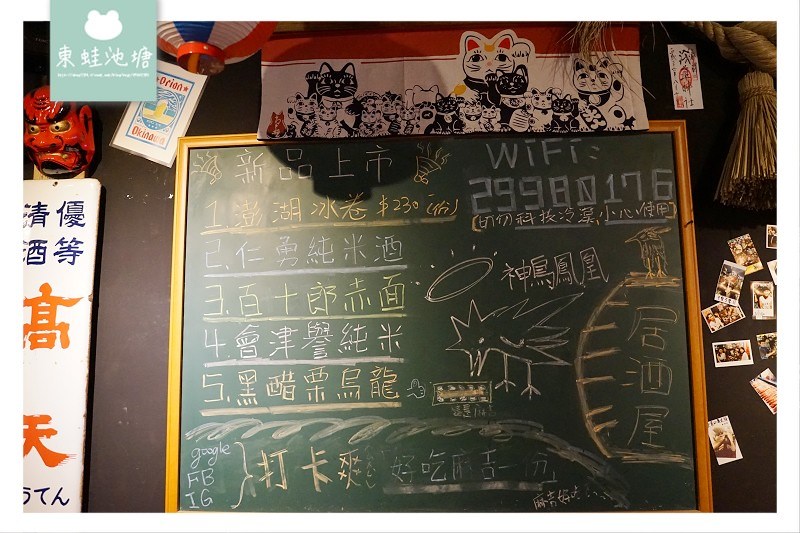 東蛙池塘
Orion
Okinawa
優等
清酒
高
天
うてん
新品上市
1.澎湖冰卷 $230(份)
2.仁勇純米酒
3.百十郎赤面
4.會津譽純米
5.黑醋栗烏龍
WiFi:
29980176
小心使用
神鳥鳳凰
居酒屋
google
FB
IG
打卡爽
好吃麻吉一份